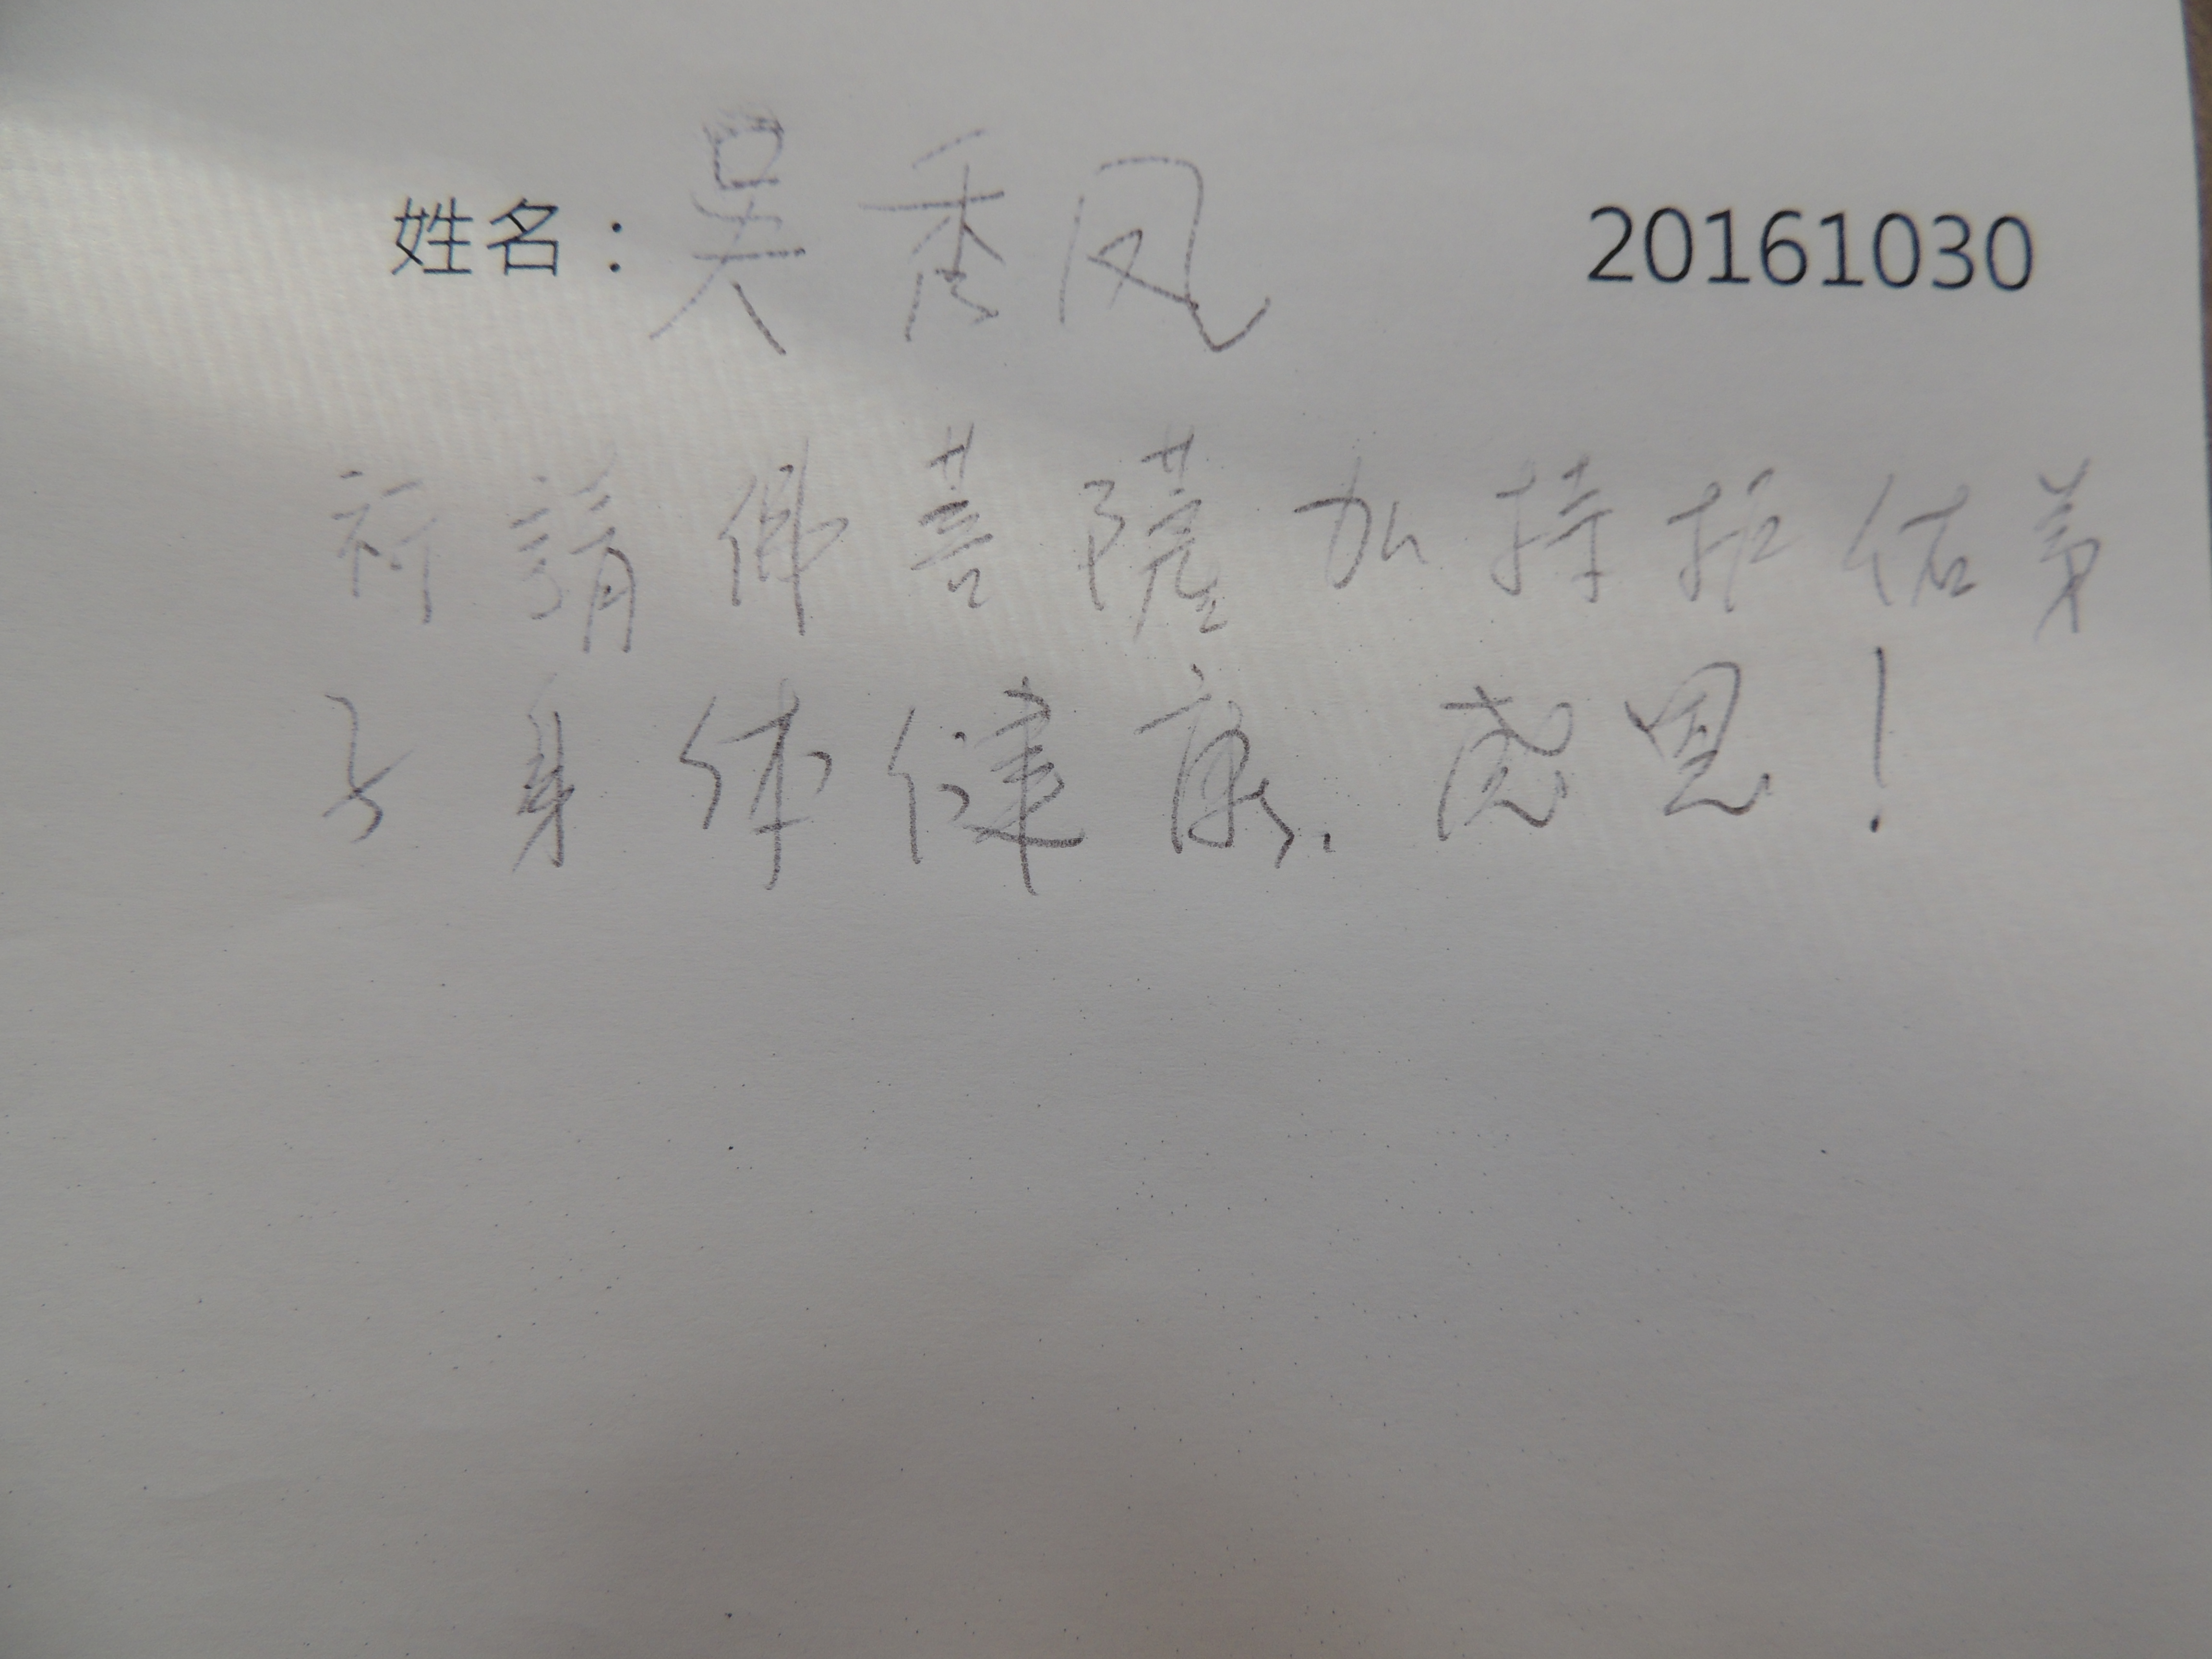 姓名：吴秀凤 20161030
祈請佛菩薩加持护佑弟
子身体健康.感恩！